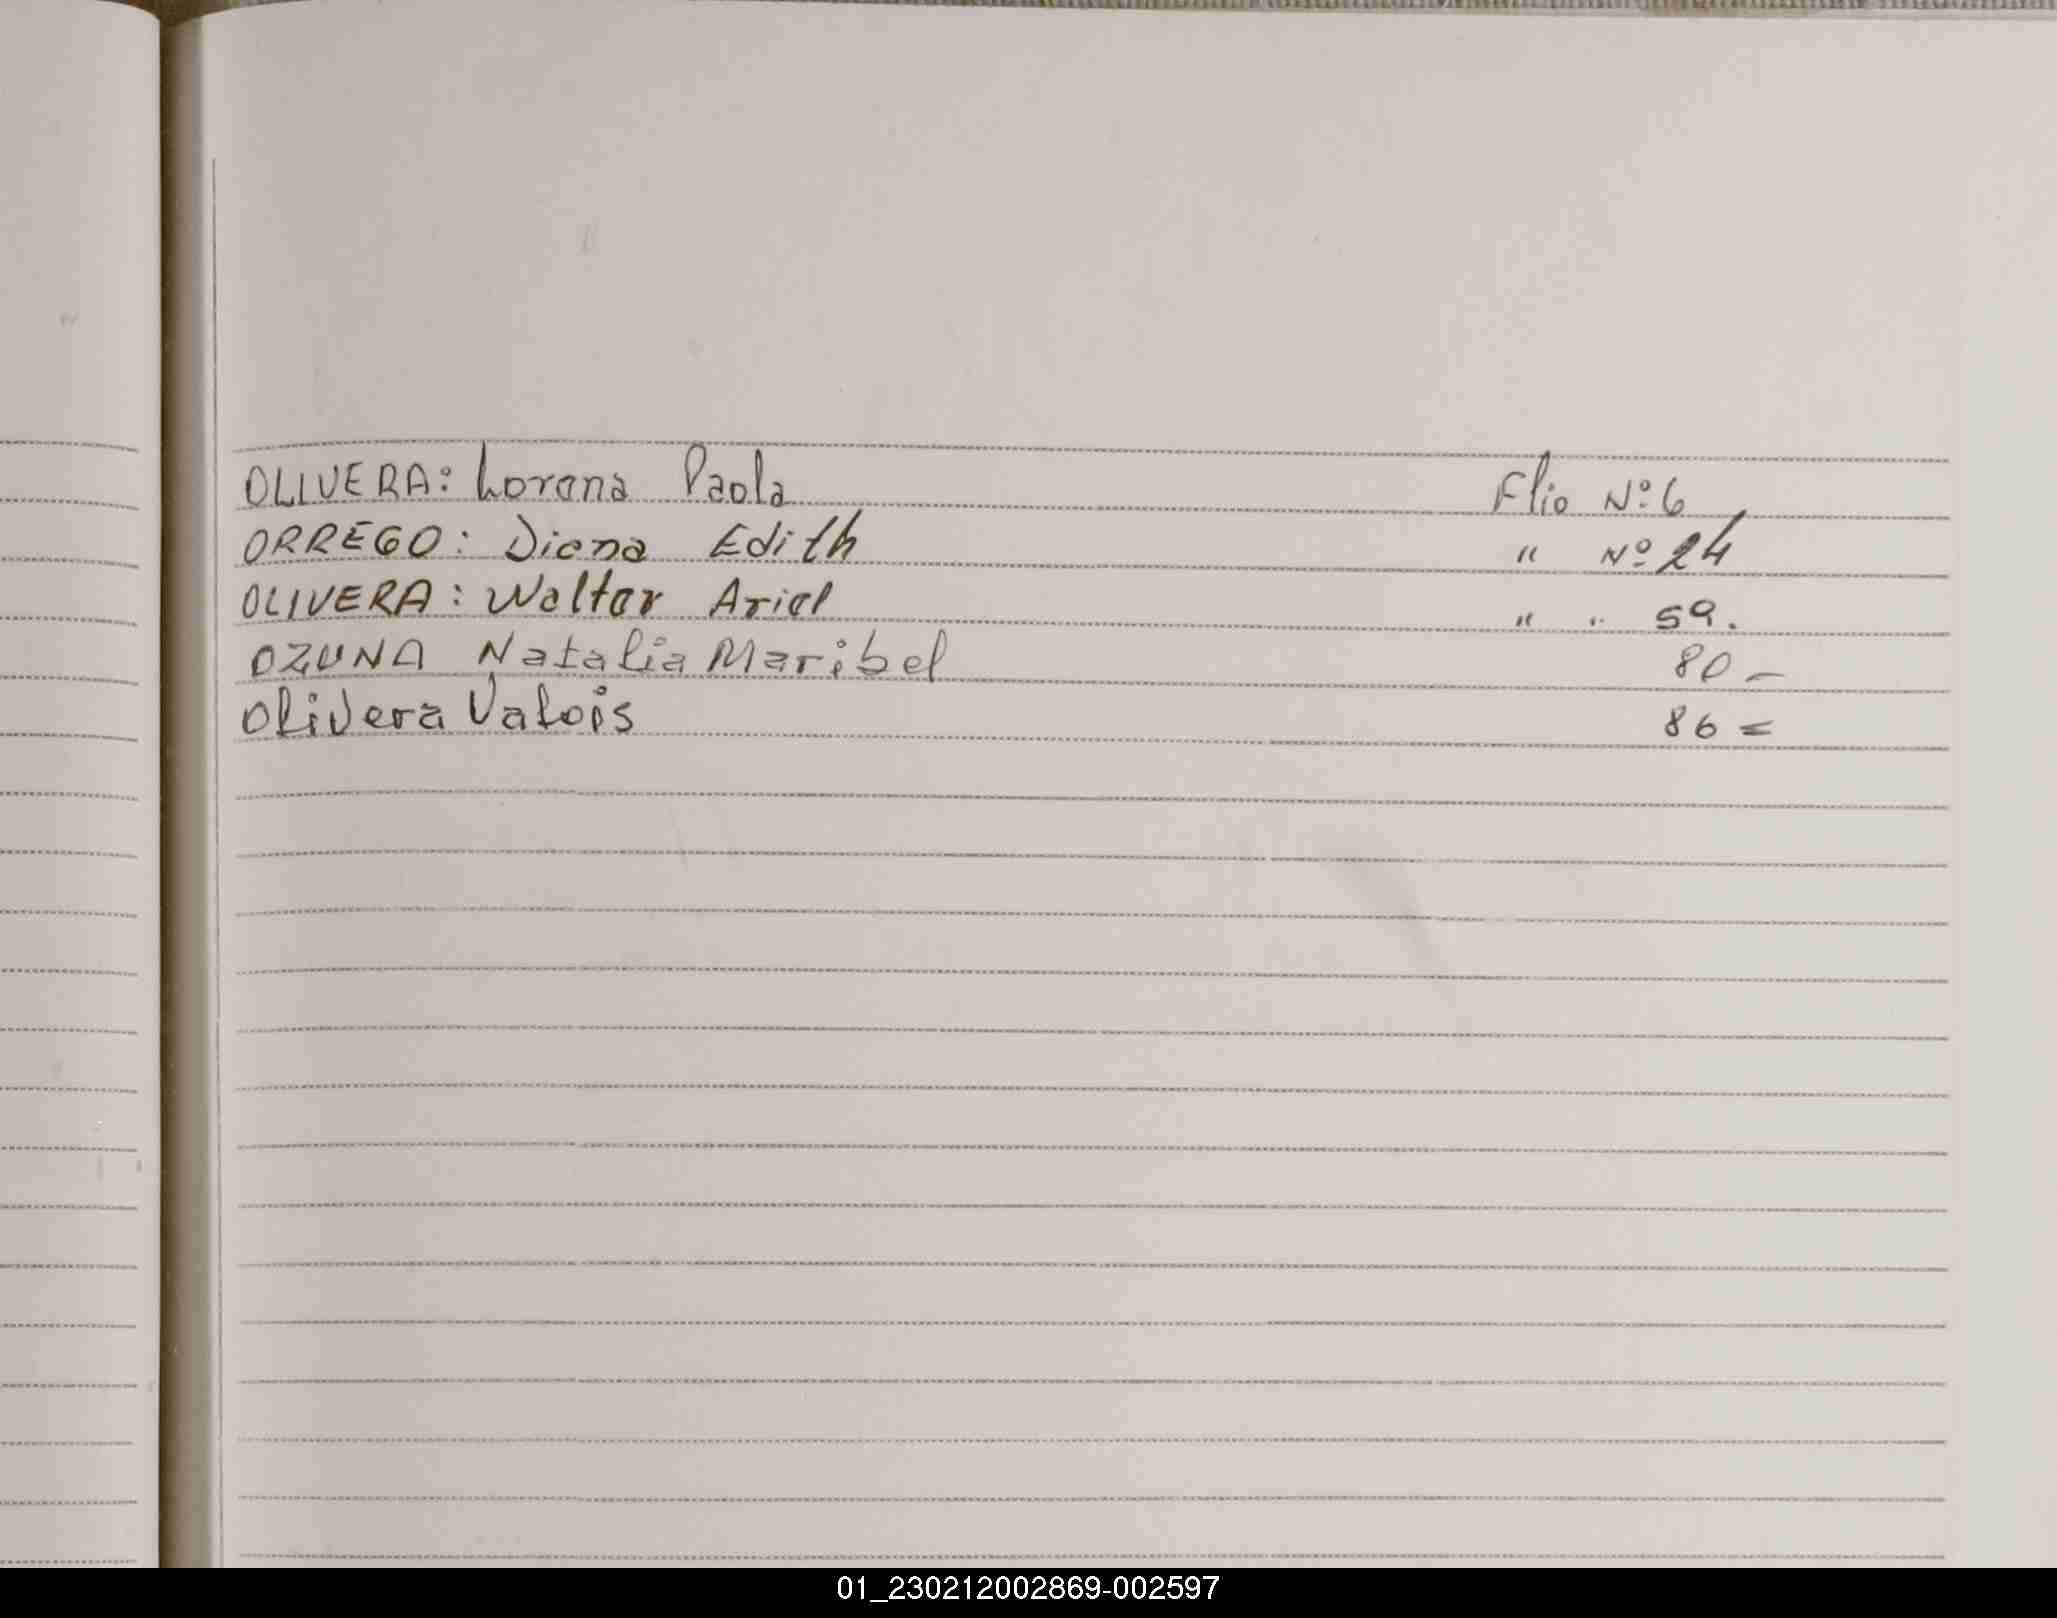 OLIVERA: Lorena Paola Flio Nº 6
ORREGO: Diana Edith " Nº 24
OLIVERA: Walter Ariel " " 59.
OZUNA Natalia Maribel 80 -
Olivera Valois 86 =
01_230212002869-002597